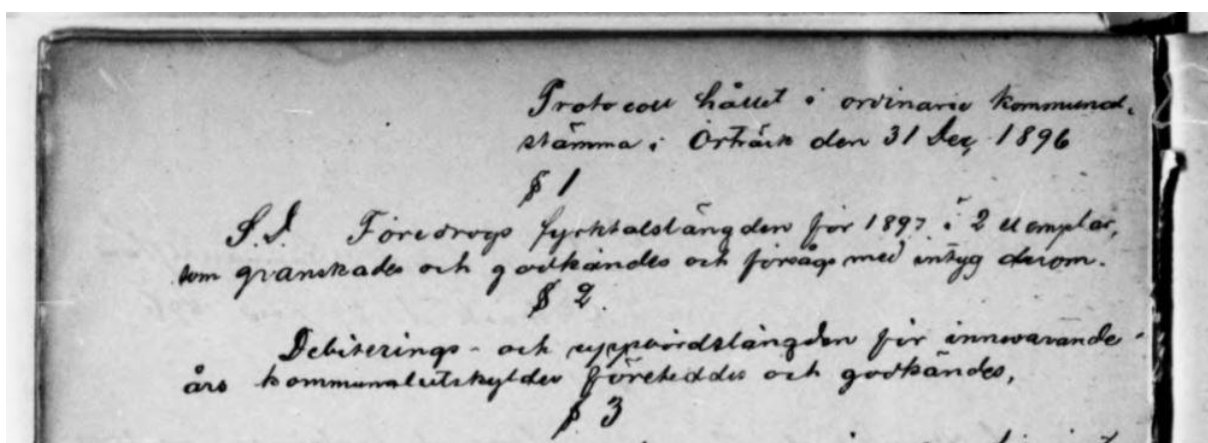 Protocoll hållet i ordinarie kommunal-
stämma i Örträsk den 31 Dec, 1896
§ 1
S.D. Föredrogs fyrktalslängden för 1897 i 2 exemplar,
som granskades och godkändes och försågs med intyg derom.
§ 2.
Debiterings- och uppbördslängden för innevarande
års kommunalutskylder företeddes och godkändes,
§ 3